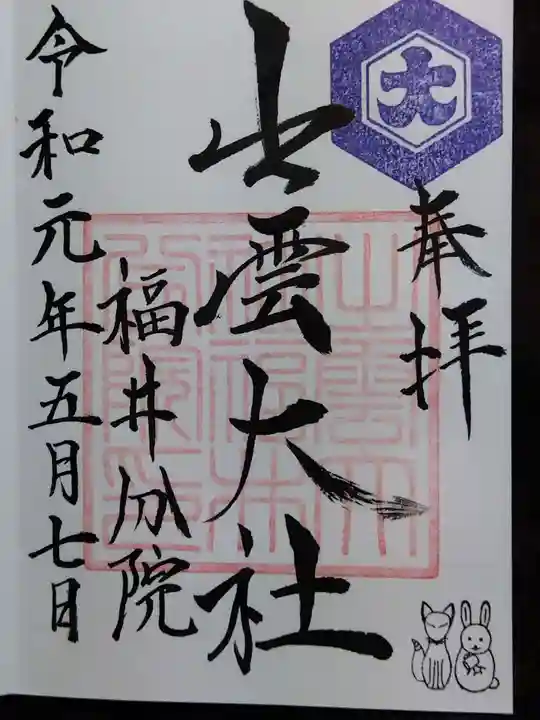 大
奉拝
出雲大社
福井分院
令和元年五月七日